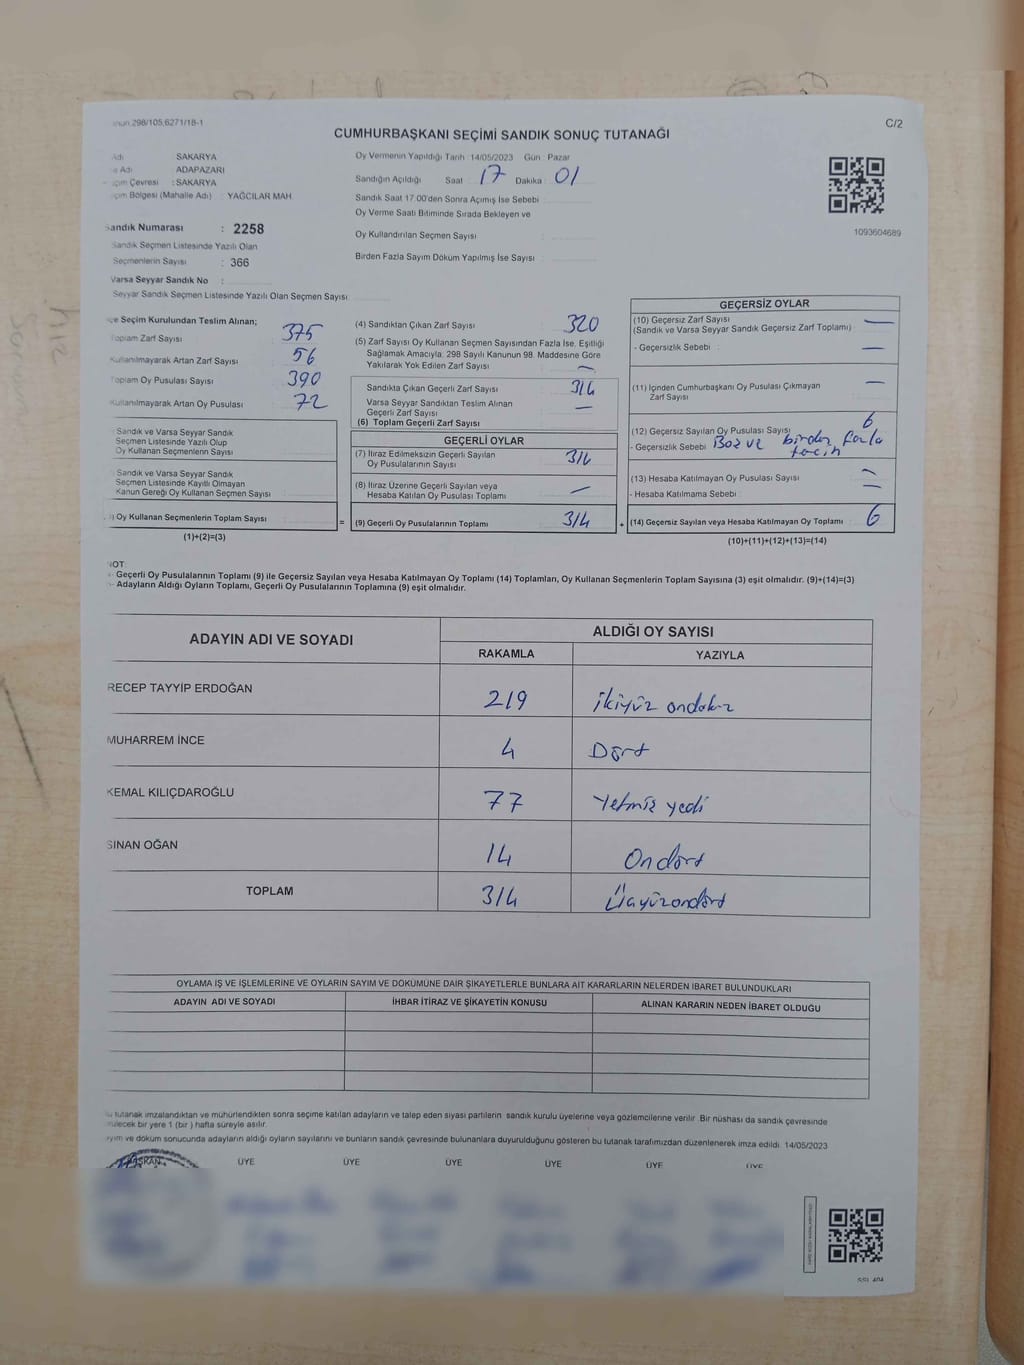 298/105,6271/18-1
C/2
CUMHURBAŞKANI SEÇİMİ SANDIK SONUÇ TUTANAĞI
Adı SAKARYA
Adı ADAPAZARI
Çevresi : SAKARYA
Bölgesi (Mahalle Adı) : YAĞCILAR MAH
Sandık Numarası : 2258
Sandık Seçmen Listesinde Yazılı Olan
Seçmenlerin Sayısı : 366
Varsa Seyyar Sandık No :
Seyyar Sandık Seçmen Listesinde Yazılı Olan Seçmen Sayısı
Oy Vermenin Yapıldığı Tarih 14/05/2023 Gün : Pazar
Sandığın Açıldığı Saat 17 Dakika : 01
Sandık Saat 17.00'den Sonra Açımış İse Sebebi
Oy Verme Saati Bitiminde Sırada Bekleyen ve
Oy Kullandırılan Seçmen Sayısı
Birden Fazla Sayım Döküm Yapılmış İse Sayısı :
1093604689
Seçim Kurulundan Teslim Alınan;
Toplam Zarf Sayısı 375
Kullanılmayarak Artan Zarf Sayısı 56
Toplam Oy Pusulası Sayısı 390
Kullanılmayarak Artan Oy Pusulası 72
Sandık ve Varsa Seyyar Sandık
Seçmen Listesinde Yazılı Olup
Oy Kullanan Seçmenlerin Sayısı
Sandık ve Varsa Seyyar Sandık
Seçmen Listesinde Kayıtlı Olmayan
Kanun Gereği Oy Kullanan Seçmen Sayısı
Oy Kullanan Seçmenlerin Toplam Sayısı =
(1)+(2)=(3)
(4) Sandıktan Çıkan Zarf Sayısı 320
(5) Zarf Sayısı Oy Kullanan Seçmen Sayısından Fazla İse, Eşitliği
Sağlamak Amacıyla; 298 Sayılı Kanunun 98. Maddesine Göre
Yakılarak Yok Edilen Zarf Sayısı —
Sandıkta Çıkan Geçerli Zarf Sayısı 314
Varsa Seyyar Sandıktan Teslim Alınan
Geçerli Zarf Sayısı —
(6) Toplam Geçerli Zarf Sayısı
GEÇERLİ OYLAR
(7) İtiraz Edilmeksizin Geçerli Sayılan
Oy Pusulalarının Sayısı 314
(8) İtiraz Üzerine Geçerli Sayılan veya
Hesaba Katılan Oy Pusulası Toplamı —
(9) Geçerli Oy Pusulalarının Toplamı 314 +
GEÇERSİZ OYLAR
(10) Geçersiz Zarf Sayısı —
(Sandık ve Varsa Seyyar Sandık Geçersiz Zarf Toplamı)
- Geçersizlik Sebebi : —
(11) İçinden Cumhurbaşkanı Oy Pusulası Çıkmayan —
Zarf Sayısı
(12) Geçersiz Sayılan Oy Pusulası Sayısı 6
- Geçersizlik Sebebi : Boz ve birden fazla
tercih
(13) Hesaba Katılmayan Oy Pusulası Sayısı —
- Hesaba Katılmama Sebebi —
(14) Geçersiz Sayılan veya Hesaba Katılmayan Oy Toplamı 6
(10)+(11)+(12)+(13)=(14)
NOT
- Geçerli Oy Pusulalarının Toplamı (9) ile Geçersiz Sayılan veya Hesaba Katılmayan Oy Toplamı (14) Toplamları, Oy Kullanan Seçmenlerin Toplam Sayısına (3) eşit olmalıdır. (9)+(14)=(3)
- Adayların Aldığı Oyların Toplamı, Geçerli Oy Pusulalarının Toplamına (9) eşit olmalıdır.
ADAYIN ADI VE SOYADI ALDIĞI OY SAYISI
RAKAMLA YAZIYLA
RECEP TAYYİP ERDOĞAN 219 ikiyüz ondokuz
MUHARREM İNCE 4 Dört
KEMAL KILIÇDAROĞLU 77 Yetmiş yedi
SİNAN OĞAN 14 Ondört
TOPLAM 314 Üçyüzondört
OYLAMA İŞ VE İŞLEMLERİNE VE OYLARIN SAYIM VE DÖKÜMÜNE DAİR ŞİKAYETLERLE BUNLARA AİT KARARLARIN NELERDEN İBARET BULUNDUKLARI
ADAYIN ADI VE SOYADI İHBAR İTİRAZ VE ŞİKAYETİN KONUSU ALINAN KARARIN NEDEN İBARET OLDUĞU
tutanak imzalandıktan ve mühürlendikten sonra seçime katılan adayların ve talep eden siyasi partilerin sandık kurulu üyelerine veya gözlemcilerine verilir. Bir nüshası da sandık çevresinde
bir yere 1 (bir) hafta süreyle asılır.
ve döküm sonucunda adayların aldığı oyların sayılarını ve bunların sandık çevresinde bulunanlara duyurulduğunu gösteren bu tutanak tarafımızdan düzenlenerek imza edildi. 14/05/2023
BAŞKAN ÜYE ÜYE ÜYE ÜYE ÜYE ÜYE